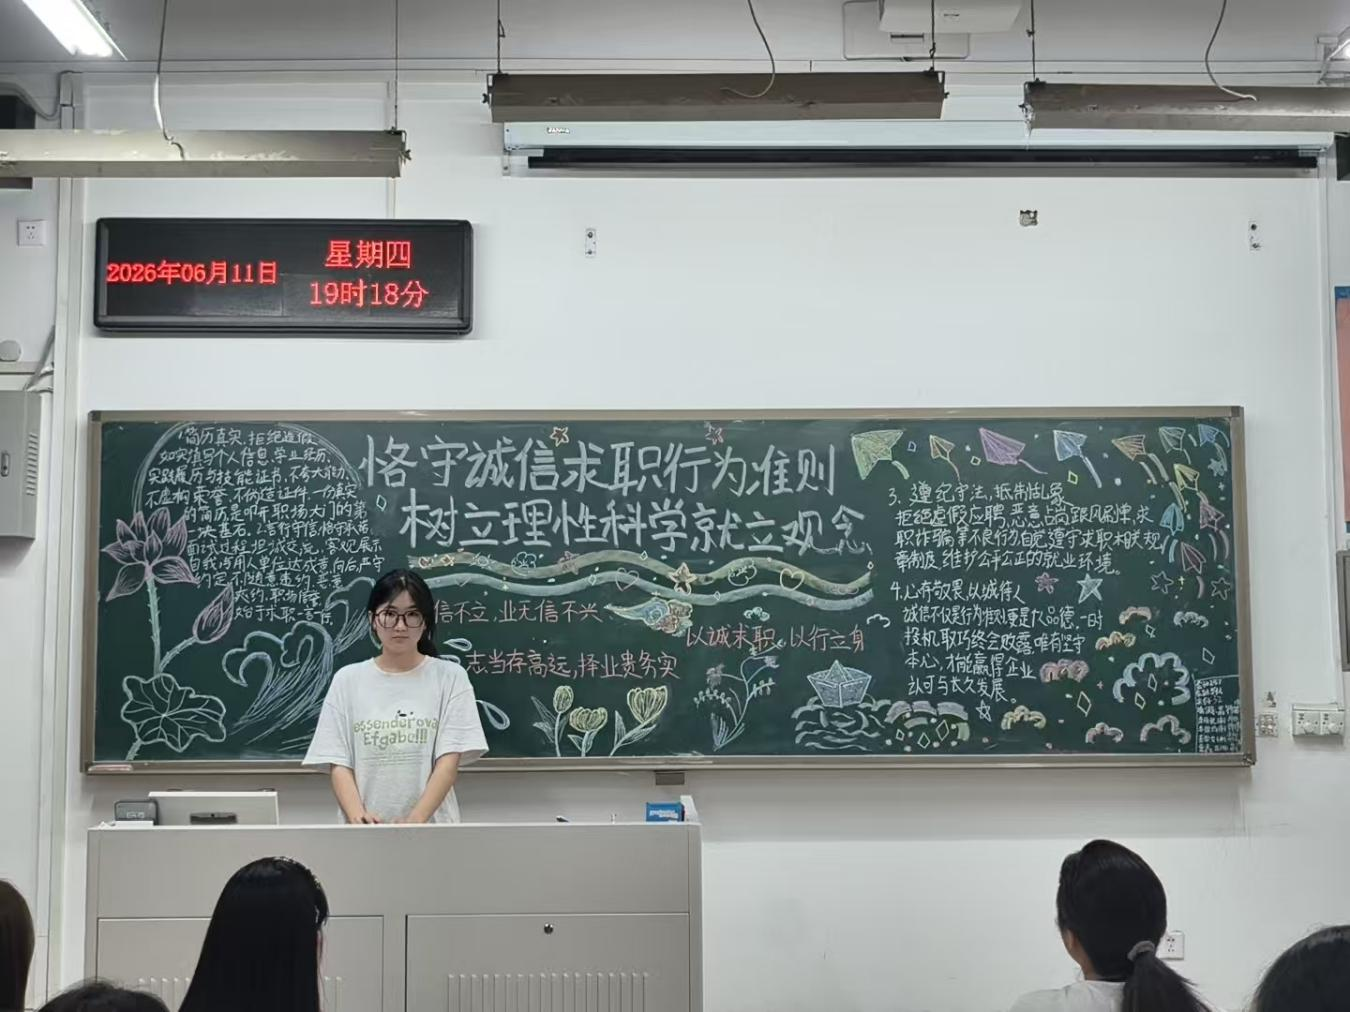 2026年06月11日
星期四
19时18分
恪守诚信求职行为准则
树立理性科学就立观念
1简历真实,拒绝造假
如实填写个人信息,学业经历、
实践履历与技能证书,不夸大能力、
不虚构荣誉、不伪造证件,一份真实
的简历是叩开职场大门的第
一块基石。2.言行守信,恪守承诺
面试过程坦诚交流,客观展示
自我,与用人单位达成意向后,严守
约定不随意违约、恶意
毁约,职场信誉
始于求职言行
信不立,业无信不兴
以诚求职,以行立身
志当存高远,择业贵务实
3.遵纪守法,抵制乱象
拒绝虚假应聘,恶意占岗跟风刷单,求
职诈骗等不良行为,自觉遵守求职相关规
章制度,维护公平公正的就业环境。
4.心存敬畏,以诚待人
诚信不仅是行为准则,更是立品德,一时
投机取巧终会败露,唯有坚守
本心,才能赢得企业
认可与长久发展。
essenderova
Efgabe!!!